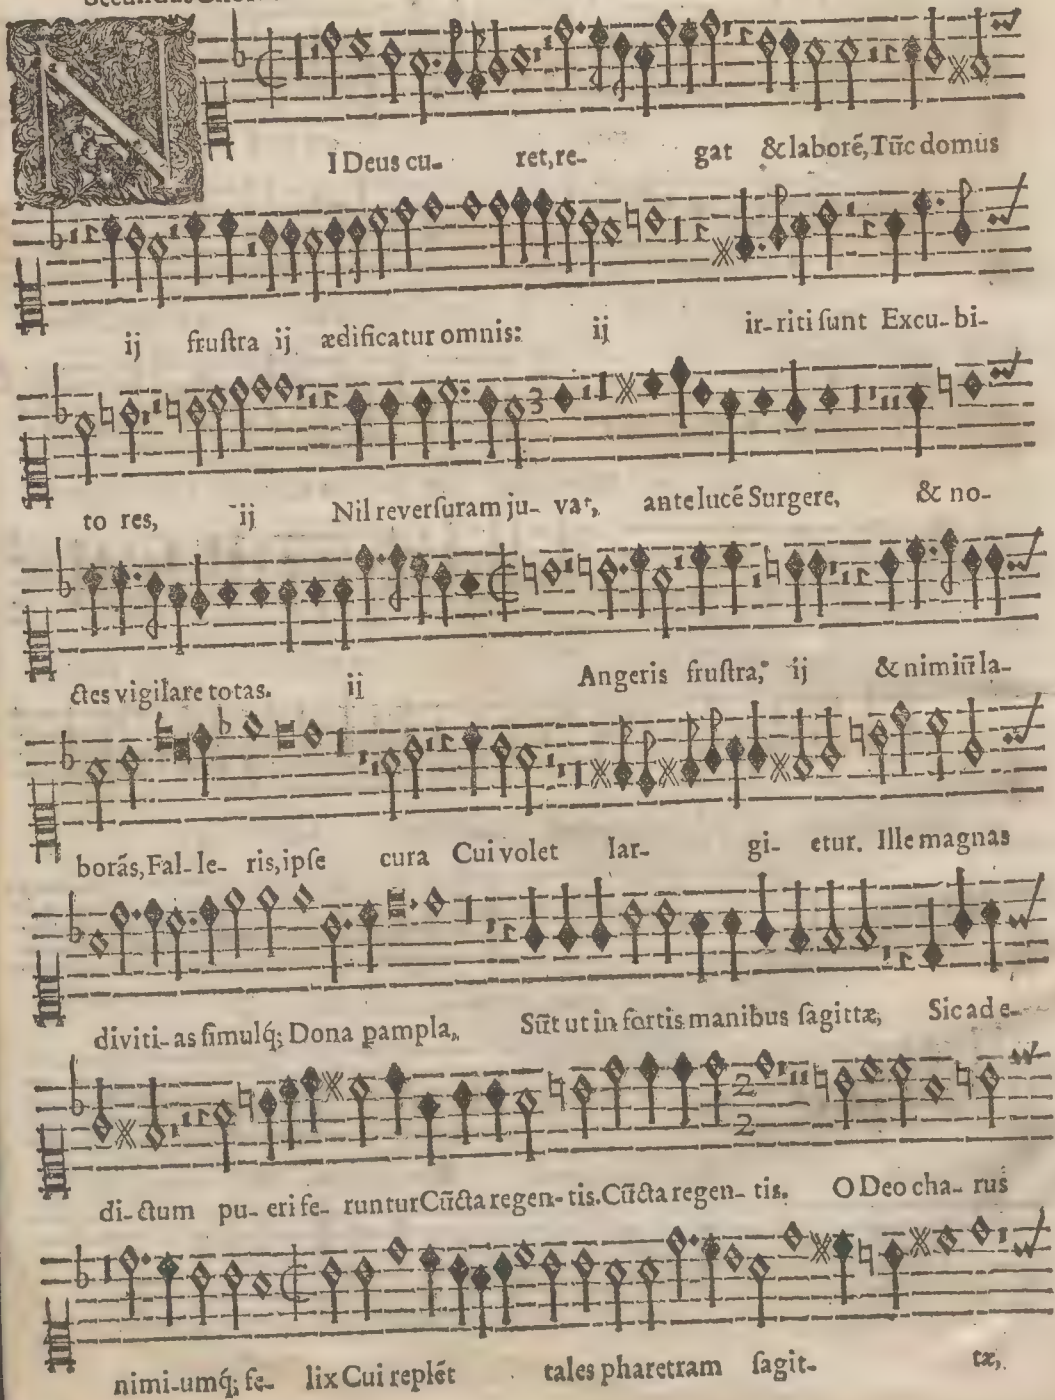 N
I Deus cu- ret, re- gat & laborē, Tūc domus
ij fruſtra ij ædificatur omnis: ij ir- riti ſunt Excu- bi-
to res, ij Nil reverſuram ju- vat, ante lucē Surgere, & no-
ctes vigilare totas. ij Angeris fruſtra, ij & nimiū la-
borās, Fal- le- ris, ipſe cura Cui volet lar- gi- etur. Ille magnas
diviti- as ſimulq́; Dona pampla, Sūt ut in fortis manibus ſagittæ, Sic ad e-
di- ctum pu- eri fe- runtur Cūcta regen- tis. Cūcta regen- tis. O Deo cha- rus
nimi- umq́; fe- lix Cui replēt tales pharetram ſagit- tæ,